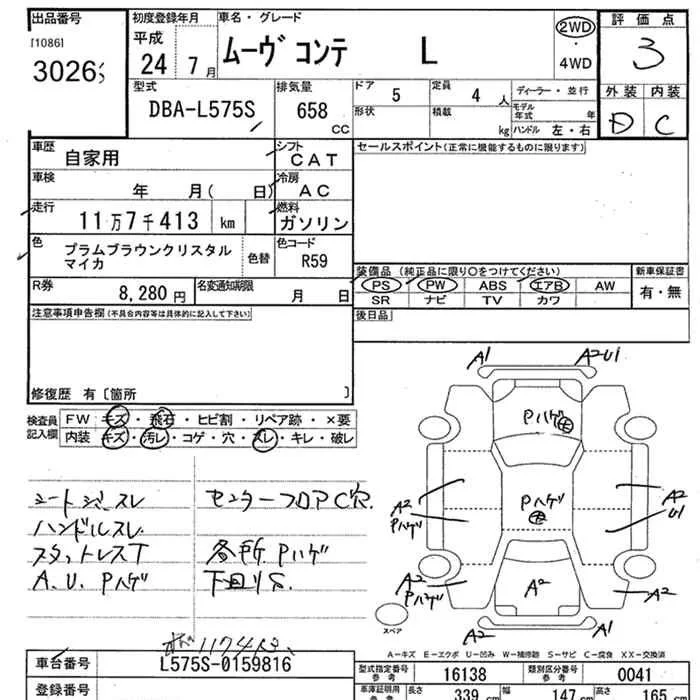 出品番号 初度登録年月 車名・グレード 2WD 評価点
[1086] 平成 ムーヴ コンテ L ・4WD 3
3026 24年 7月 外装 内装
型式 排気量 ドア 定員 ディーラー・並行 D C
DBA-L575S 658 CC 5 4人 モデル年式 年
形状 積載 kg ハンドル 左・右
車歴 自家用 シフト CAT セールスポイント(正常に機能するものに限ります)
車検 年 月( 日) 冷房 AC
走行 11万7千413 km 燃料 ガソリン
色 プラムブラウンクリスタル 色替 色コード
マイカ R59
装備品 (純正品に限り○をつけてください) 新車保証書
R券 8,280円 名変通知期限 月 日 PS PW ABS エアB AW 有・無
SR ナビ TV カワ
注意事項申告欄(不具合内容等は具体的に記入して下さい) 後日品
修復歴 有〔箇所 〕
検査員 FW キズ・飛石・ヒビ割・リペア跡・×要
記入欄 内装 キズ・汚レ・コゲ・穴・スレ・キレ・破レ
シートジミスレ センターフロアC穴
ハンドルスレ
スタットレスT 各所Pハゲ
A.U. Pハゲ 下回りS
A1 A2U1
Pハゲ
A2 Pハゲ A2
Pハゲ U1
A2 A2 A2
Pハゲ
A2 A1
スペア
A-キズ E-エクボ U-凹み W-補修跡 S-サビ C-腐食 XX-交換済
車台番号 L575S-0159816 型式指定番号 参考 16138 類別区分番号 参考 0041
登録番号 車庫証明用 参考 長さ 339 cm 幅 147 cm 高さ 165 cm